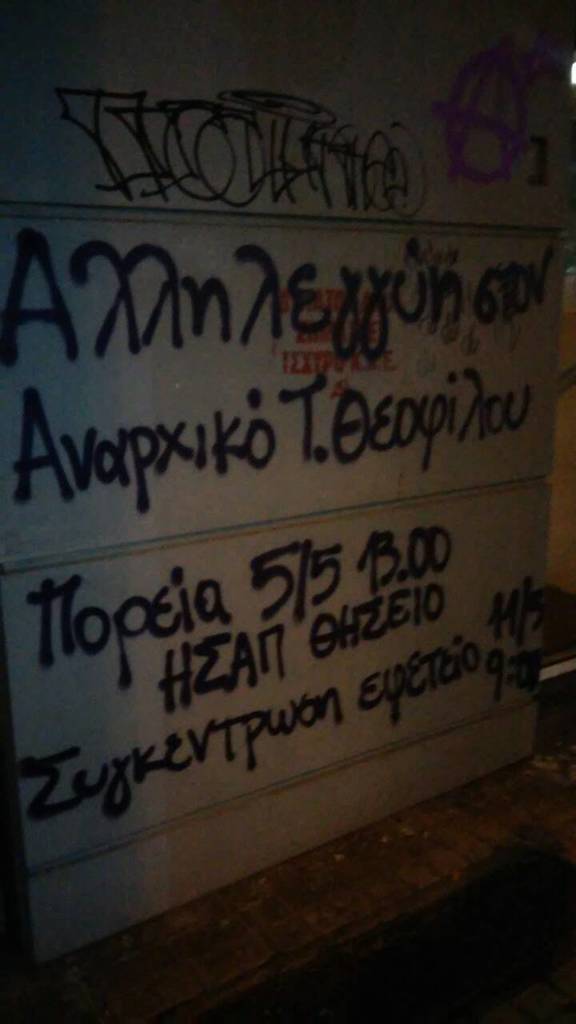 Αλληλεγγύη στον
Αναρχικό Τ. Θεοφίλου
Πορεία 5/5 13.00
ΗΣΑΠ ΘΗΣΕΙΟ
Συγκεντρωση εφετείο 11/5
9:00
ΙΣΧΥΡΟ Κ.Κ.Ε.